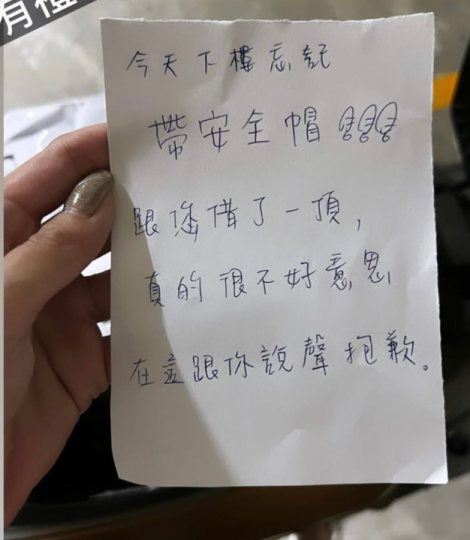 有
今天下樓忘記
帶安全帽
跟您借了一頂,
真的很不好意思,
在這跟你說聲抱歉。